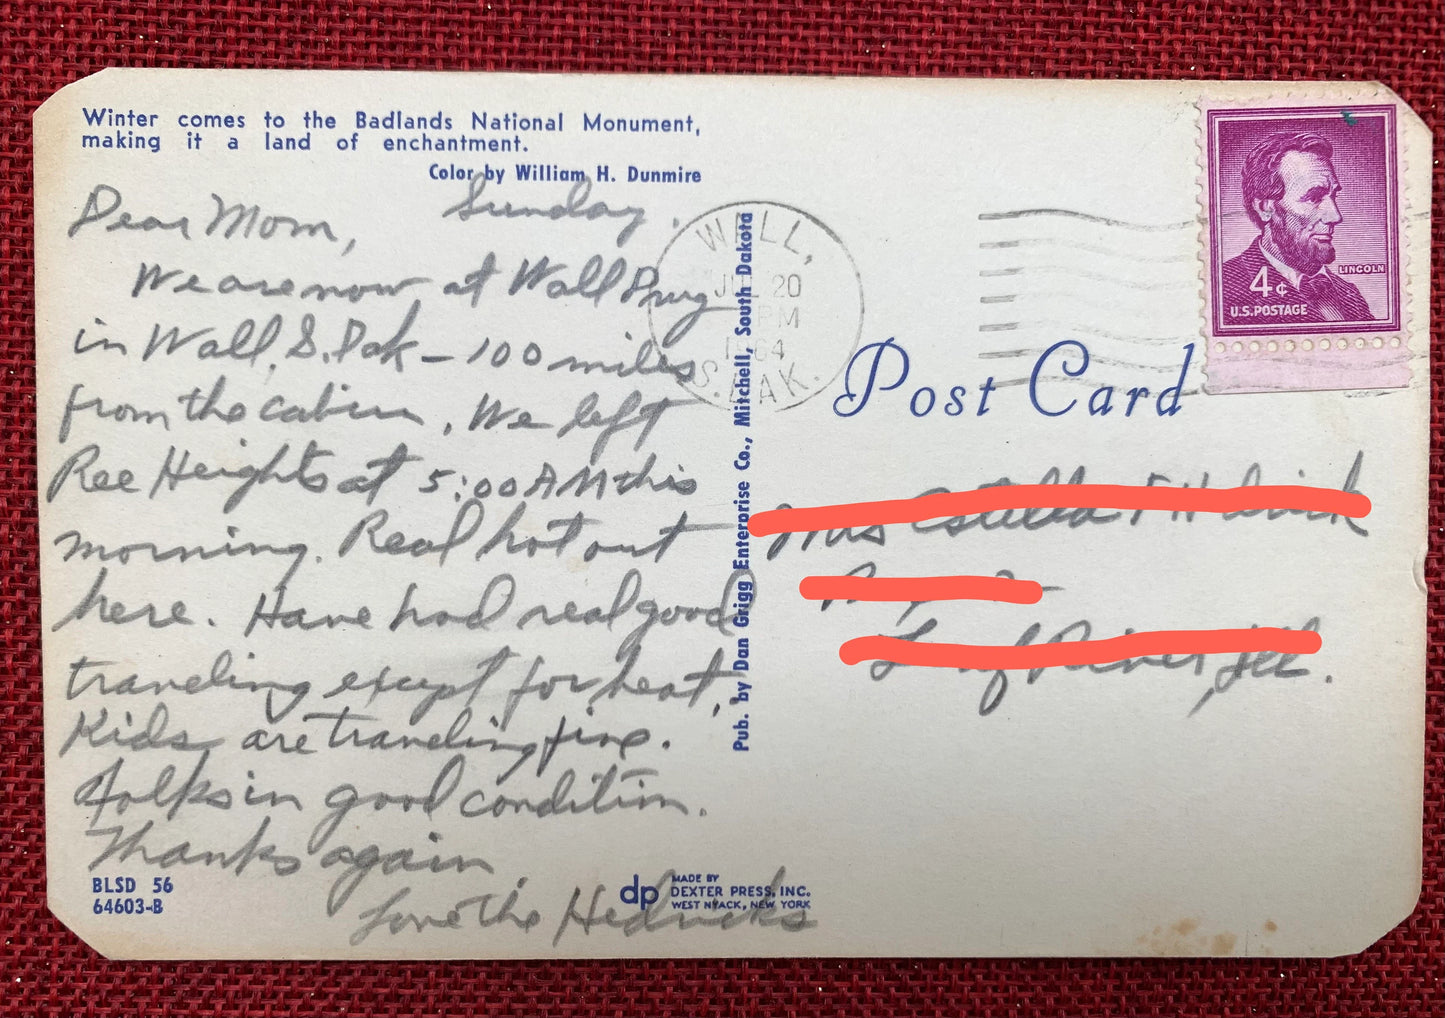 Winter comes to the Badlands National Monument,
making it a land of enchantment.
Color by William H. Dunmire
Sunday.
Dear Mom,
We are now at Wall Drug
in Wall, S. Dak – 100 miles
from the cabin. We left
Ree Heights at 5:00 AM this
morning. Real hot out
here. Have had real good
traveling except for heat.
Kids are traveling fine.
Folks in good condition.
Thanks again.
Love The Hedricks
BLSD 56
64603-B
dp
MADE BY
DEXTER PRESS, INC.
WEST NYACK, NEW YORK
Pub. by Dan Grigg Enterprise Co., Mitchell, South Dakota
WALL,
JUL 20
PM
1964
S. DAK.
LINCOLN
4¢
U.S. POSTAGE
Post Card